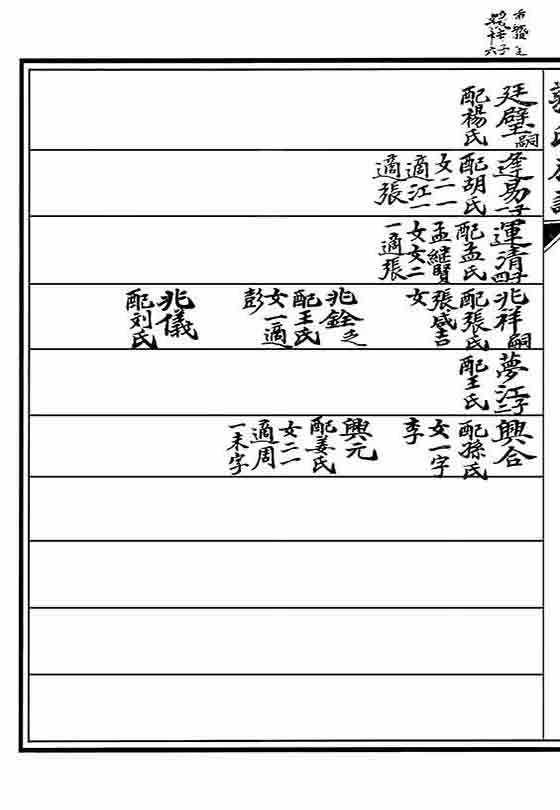 廷璧嗣
配楊氏
逢易一子
配胡氏
女二一
適江一
適張
運清四子
配孟氏
孟繼賢
女女二
一適張
兆祥嗣
配張氏
張咸吉
女
兆銓之
配王氏
女一適
彭
兆儀
配刘氏
夢江二子
配王氏
興合
配孫氏
女一字
李
興元
配姜氏
女二一
適周
一未字